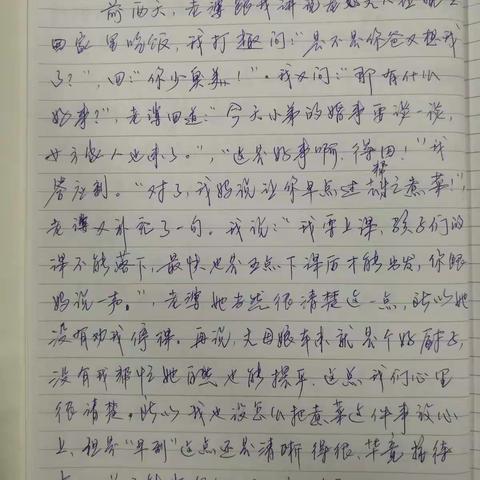 前两天，老婆跟我讲
回家里吃饭，我打趣问："是不是你爸又想我
了？"，回："你少臭美！"。我又问："那有什么
好事？"，老婆回道："今天小弟的婚事要谈一谈，
女方家人也来了。"，"这是好事啊，得回！"我
答应到。"对了，我妈说让你早点过去帮忙煮菜！"，
老婆又补充了一句。我说："我要上课，孩子们的
课不能落下，最快也要五点下课后才能出发，你跟
妈说一声。"，老婆她当然很清楚这一点，所以她
没有劝我停课。再说，丈母娘本来就是个好厨子，
没有我帮忙她自然也能操弄，这点我们心里
很清楚。所以我也没怎么把煮菜这件事放心
上，但是"早到"这点还是清晰得很，毕竟接待